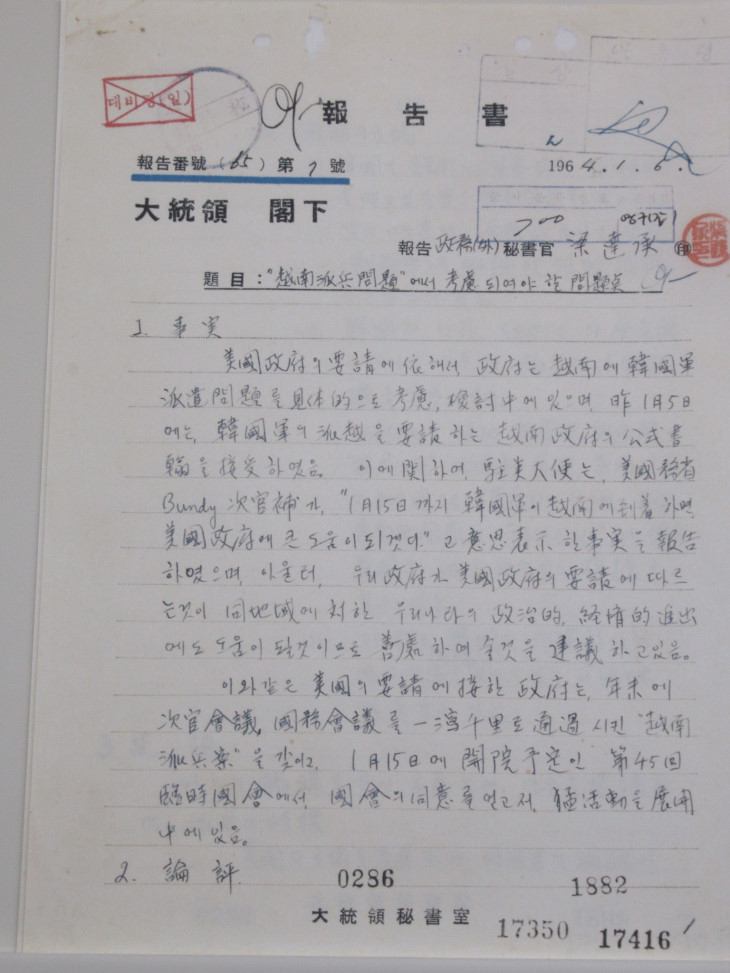 대비정(일)
報告書
報告番號 (65) 第 7 號
1964.1.6.
大統領 閣下
報告 政務(外)秘書官 梁達承 印
題目 : "越南派兵問題"에서 考慮되여야 할 問題點
1. 事実
美國政府의 要請에 依해서, 政府는 越南에 韓國軍
派遣問題를 具体的으로 考慮, 検討中에 있으며, 昨 1月5日
에는, 韓國軍의 派越을 要請하는 越南政府의 公式書
翰을 接受하였음. 이에 関하여, 駐美大使는, 美國務省
Bundy 次官補가, "1月15日까지 韓國軍이 越南에 到着하면
美國政府에 큰 도움이 되겠다."고 意思表示한 事実을 報告
하였으며, 아울러, 우리 政府가 美國政府의 要請에 따르
는것이 同地域에 対한 우리나라의 政治的, 経済的 進出
에도 도움이 될것이므로 善處하여 줄것을 建議하고 있음.
이와같은 美國의 要請에 接한 政府는, 年末에
次官會議, 國務會議를 一瀉千里로 通過시킨 "越南
派兵案"을 갖이고, 1月15日에 開院予定인 第45回
臨時國會에서, 國會의 同意를 얻고저, 猛活動을 展開
中에 있음.
2. 論評.
0286
1882
大統領秘書室
17350
17416